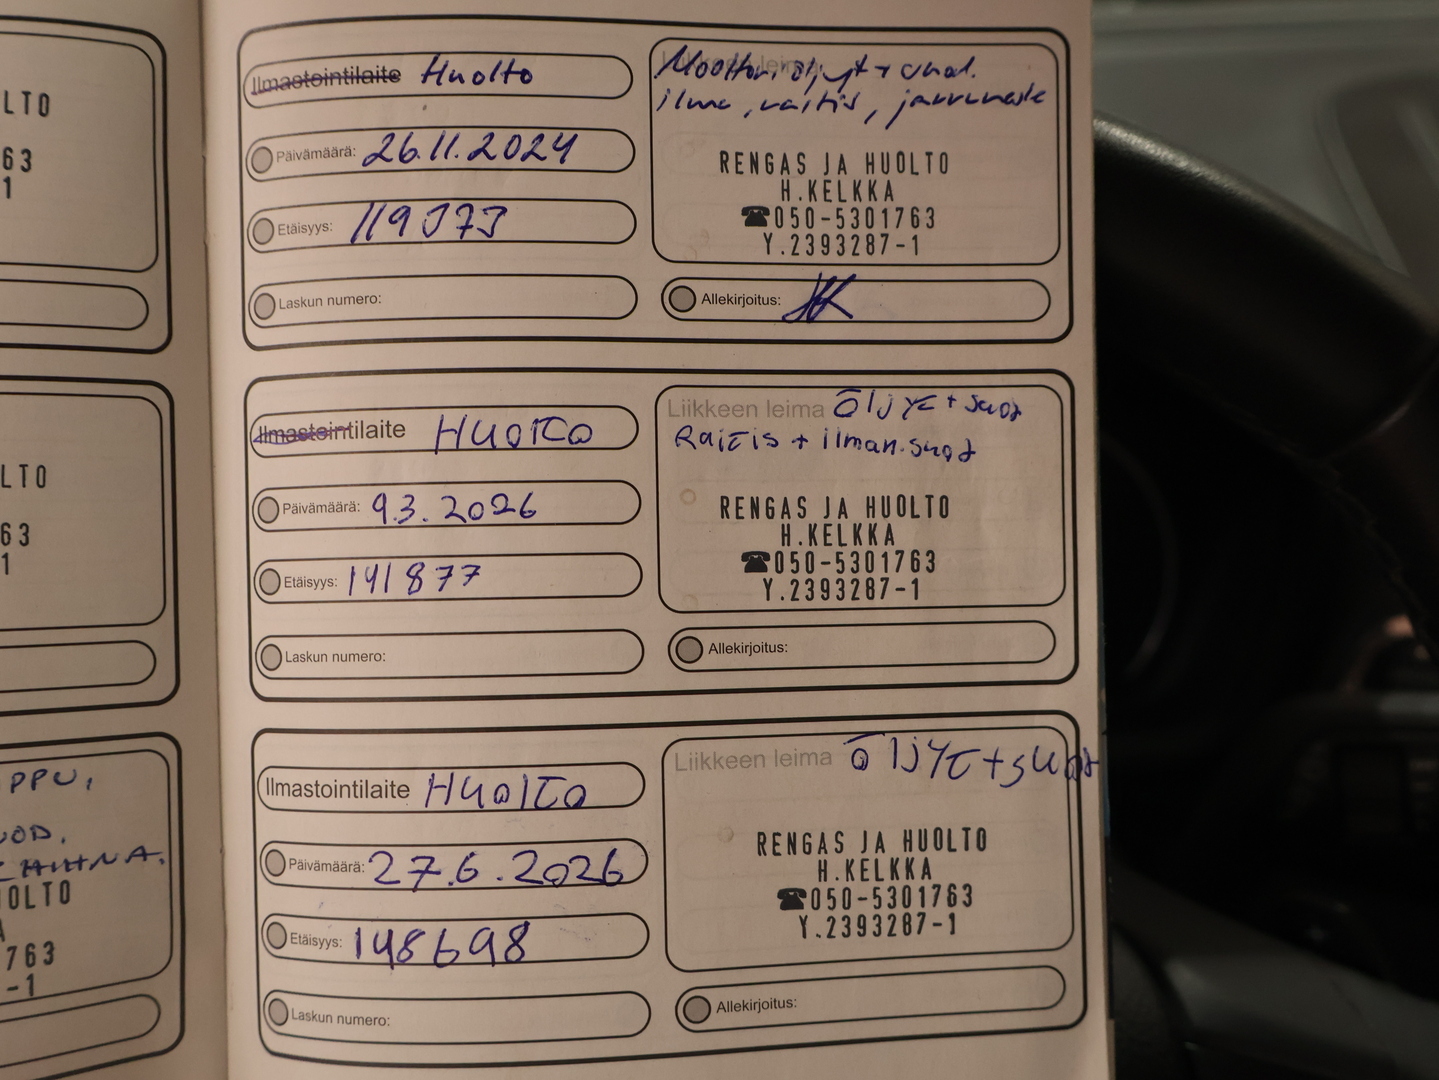 LTO
63
1
LTO
63
1
PPU,
UOD.
OLTO
A
763
-1
Ilmastointilaite Huolto
Päivämäärä: 26.11.2024
Etäisyys: 119073
Laskun numero:
Liikkeen leima
Moottoriöljyt + suod.
ilma, raitis, jarruneste
RENGAS JA HUOLTO
H.KELKKA
☎050-5301763
Y.2393287-1
Allekirjoitus: HK
Ilmastointilaite HUOLTO
Päivämäärä: 9.3.2026
Etäisyys: 141877
Laskun numero:
Liikkeen leima ÖljyT + suod
RaiTis + ilman.suod
RENGAS JA HUOLTO
H.KELKKA
☎050-5301763
Y.2393287-1
Allekirjoitus:
Ilmastointilaite HUOLTO
Päivämäärä: 27.6.2026
Etäisyys: 148698
Laskun numero:
Liikkeen leima ÖljyT + suod
RENGAS JA HUOLTO
H.KELKKA
☎050-5301763
Y.2393287-1
Allekirjoitus: